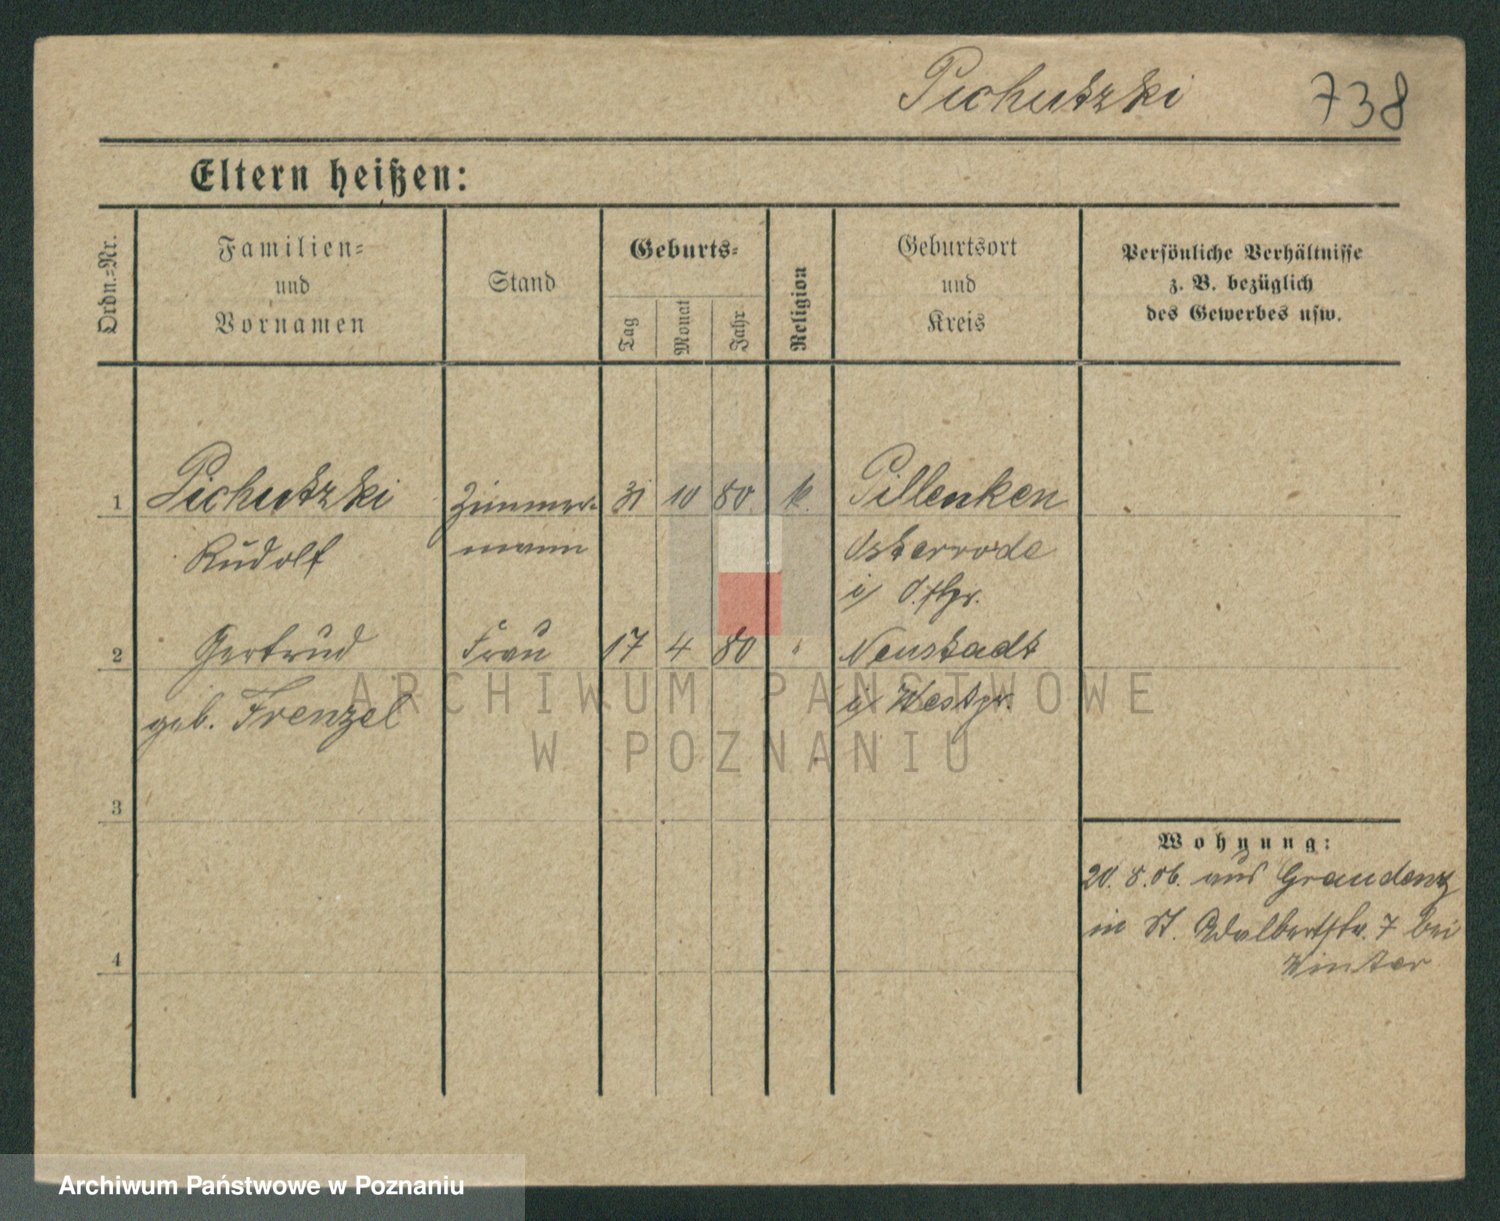 Pichutzki 738
Eltern heißen:
Ordn.-Nr.
Familien-
und
Vornamen
Stand
Geburts-
Tag
Monat
Jahr
Religion
Geburtsort
und
Kreis
Persönliche Verhältnisse
z. B. bezüglich
des Gewerbes usw.
1 Pichutzki Zimmer- 31 10 80. k. Pillenken
Rudolf mann Osterrode
i/ Ostpr.
2 Gertrud Frau 17 4 80 " Neustadt
geb. Frenzel i/ Westpr.
3
Wohnung:
20. 8. 06. aus Graudenz
in St. Adalbertstr. 7 bei
Winter
4
ARCHIWUM PAŃSTWOWE
W POZNANIU
Archiwum Państwowe w Poznaniu